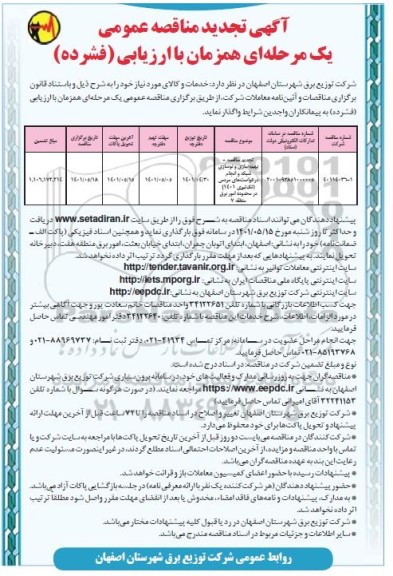 آگهی تجدید مناقصه عمومی
یک مرحله‌ای همزمان با ارزیابی (فشرده)
شرکت توزیع برق شهرستان اصفهان در نظر دارد: خدمات و کالای مورد نیاز خود را به شرح ذیل و با استناد قانون
برگزاری مناقصات و آئین‌نامه معاملات شرکت، از طریق برگزاری مناقصه عمومی یک مرحله‌ای همزمان با ارزیابی
(فشرده) به پیمانکاران واجدین شرایط واگذار نماید.
شماره مناقصه شرکت
شماره مناقصه در سامانه تدارکات الکترونیکی دولت (ستاد)
موضوع مناقصه
تاریخ توزیع دفترچه
مهلت تهیه دفترچه
آخرین مهلت تحویل پاکات
تاریخ برگزاری مناقصه
مبلغ تضمین
۱۴۰۱/۰۴/۳۰
۱۴۰۱/۰۵/۰۵
۱۴۰۱/۰۵/۱۵
۱۴۰۱/۰۵/۱۸
پیشنهاد دهندگان می‌توانند اسناد مناقصه به شرح فوق را از طریق سایت www.setadiran.ir دریافت
و حداکثر تا روز شنبه مورخ ۱۴۰۱/۰۵/۱۵ در سامانه فوق بارگذاری نماید و همچنین اسناد فیزیکی (پاکت الف -
ضمانت‌نامه) خود را به نشانی: اصفهان، ابتدای اتوبان چمران، ابتدای خیابان بعثت، امور برق منطقه هفت، دبیرخانه
تحویل نمایند. به پیشنهادهایی که بعد از مهلت مقرر بارگذاری گردد ترتیب اثر داده نخواهد شد.
سایت اینترنتی معاملات توانیر به نشانی: http://tender.tavanir.org.ir
سایت اینترنتی پایگاه ملی مناقصات ایران به نشانی: http://iets.mporg.ir
سایت اینترنتی شرکت توزیع برق شهرستان اصفهان به نشانی: http://eepdc.ir
جهت کسب اطلاعات بازرگانی با شماره تلفن ۳۴۱۲۲۶۵۱ واحد مناقصات خانم سعادت پور و جهت آگاهی بیشتر
در مورد الزامات، اطلاعات، شرح خدمات این مناقصه با شماره تلفن: ۳۴۱۲۲۶۲۰ دفتر امور مهندسی تماس حاصل
فرمایید.
جهت انجام مراحل عضویت در سامانه: مرکز تماس ۴۱۹۳۴-۰۲۱ دفتر ثبت نام: ۸۸۹۶۹۷۳۷-۰۲۱ و
۸۵۱۹۳۷۶۸-۰۲۱ تماس حاصل فرمایید.
نوع و مبلغ تضمین شرکت در مناقصه: در اسناد درج شده است.
* مناقصه‌گران جهت به روز رسانی مدارک و فعالیت‌های خود در سامانه برون سپاری شرکت توزیع برق شهرستان
اصفهان به نشانی https://www.eepdc.ir مراجعه نمایند. (در صورت هرگونه سوال با شماره تلفن
۳۲۲۴۱۱۵۳ آقای امیرانی تماس حاصل فرمایید)
* شرکت توزیع برق شهرستان اصفهان تغییر و اصلاح در اسناد مناقصه را تا ۷۲ ساعت قبل از آخرین مهلت ارائه
پیشنهاد و تحویل پاکات‌ها برای خود محفوظ می‌دارد.
* شرکت کنندگان در مناقصه می‌بایست دو روز قبل از آخرین تاریخ تحویل پاکت‌ها با مراجعه به سایت شرکت و یا
تماس با واحد مناقصه و مزایده، از آخرین اصلاحات احتمالی اسناد مطلع گردند، در غیر اینصورت مسئولیت عدم
رعایت این بند به عهده مناقصه گران می‌باشد.
* پیشنهادات رسیده با حضور اعضای کمیسیون معاملات باز و قرائت خواهد شد.
* حضور پیشنهاد دهندگان (هر شرکت کننده یک نفر با ارائه معرفی نامه) در جلسه بازگشایی پاکات آزاد می‌باشد.
* به مدارک، پیشنهادات و نامه‌های فاقد امضاء، مخدوش یا بعد از انقضای مهلت مقرر واصل شود مطلقا ترتیب
اثر داده نخواهد شد.
* شرکت توزیع برق شهرستان اصفهان در رد یا قبول کلیه پیشنهادات مختار می‌باشد.
* سایر اطلاعات و جزئیات مربوط در اسناد مناقصه مندرج می‌باشد.
روابط عمومی شرکت توزیع برق شهرستان اصفهان